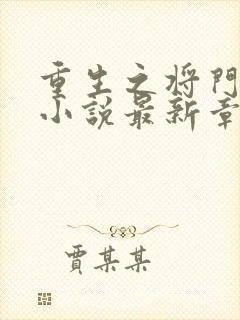 重生之将門
小説最新章
賈某某